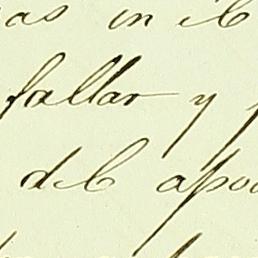 as in el
fallar y
del apo